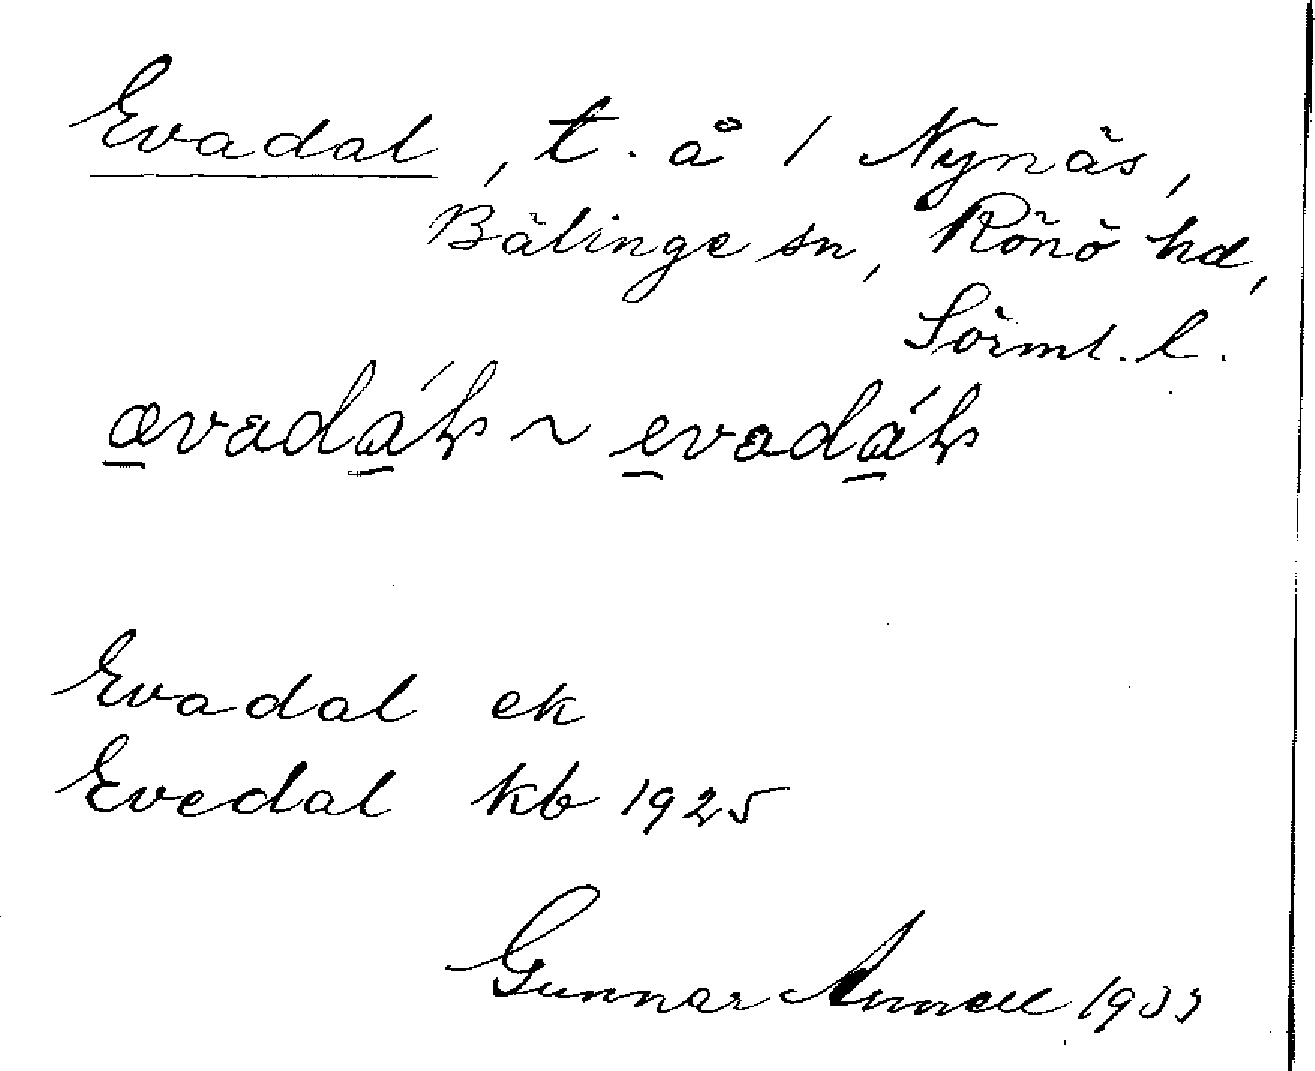 Evadal, t. å / Nynäs,
Bälinge sn, Rönö hd,
Sörml. l.
ævadáls ~ evadáls
Evadal ek
Evedal kb 1925
Gunnar Annell 1933